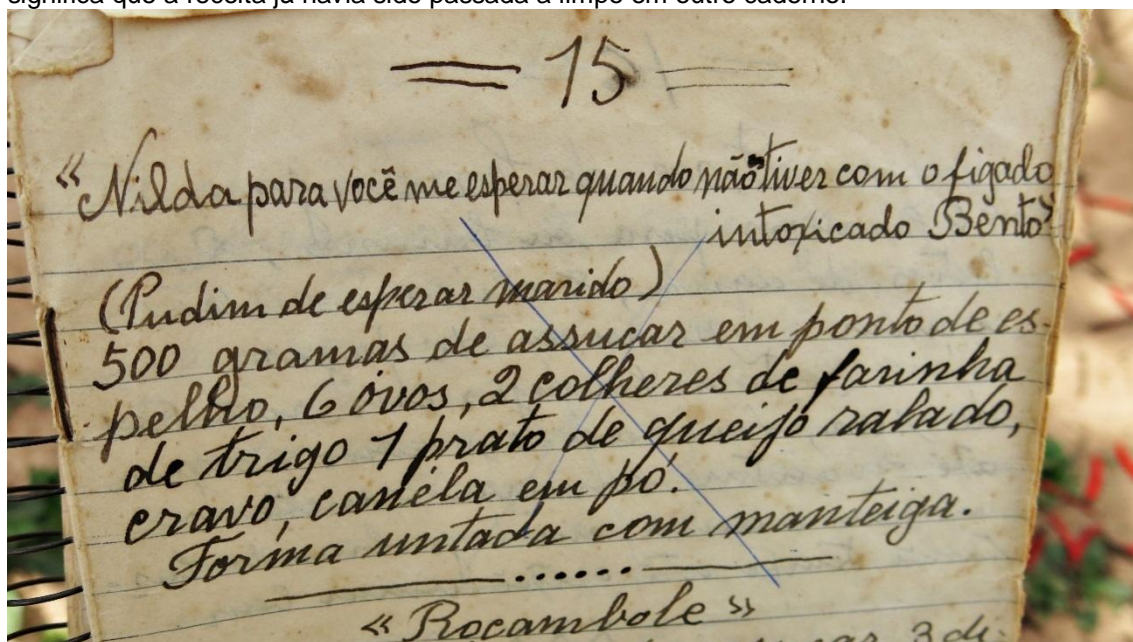 significa que a receita já havia sido passada a limpo em outro caderno.
= 15 =
"Nilda para você me esperar quando não tiver com o figado
intoxicado Bento"
(Pudim de esperar marido)
500 gramas de assucar em ponto de es-
pelho, 6 óvos, 2 colheres de farinha
de trigo 1 prato de queijo ralado,
cravo, canéla em pó.
Fôrma untada com manteiga.
«Rocambole»
3 di-